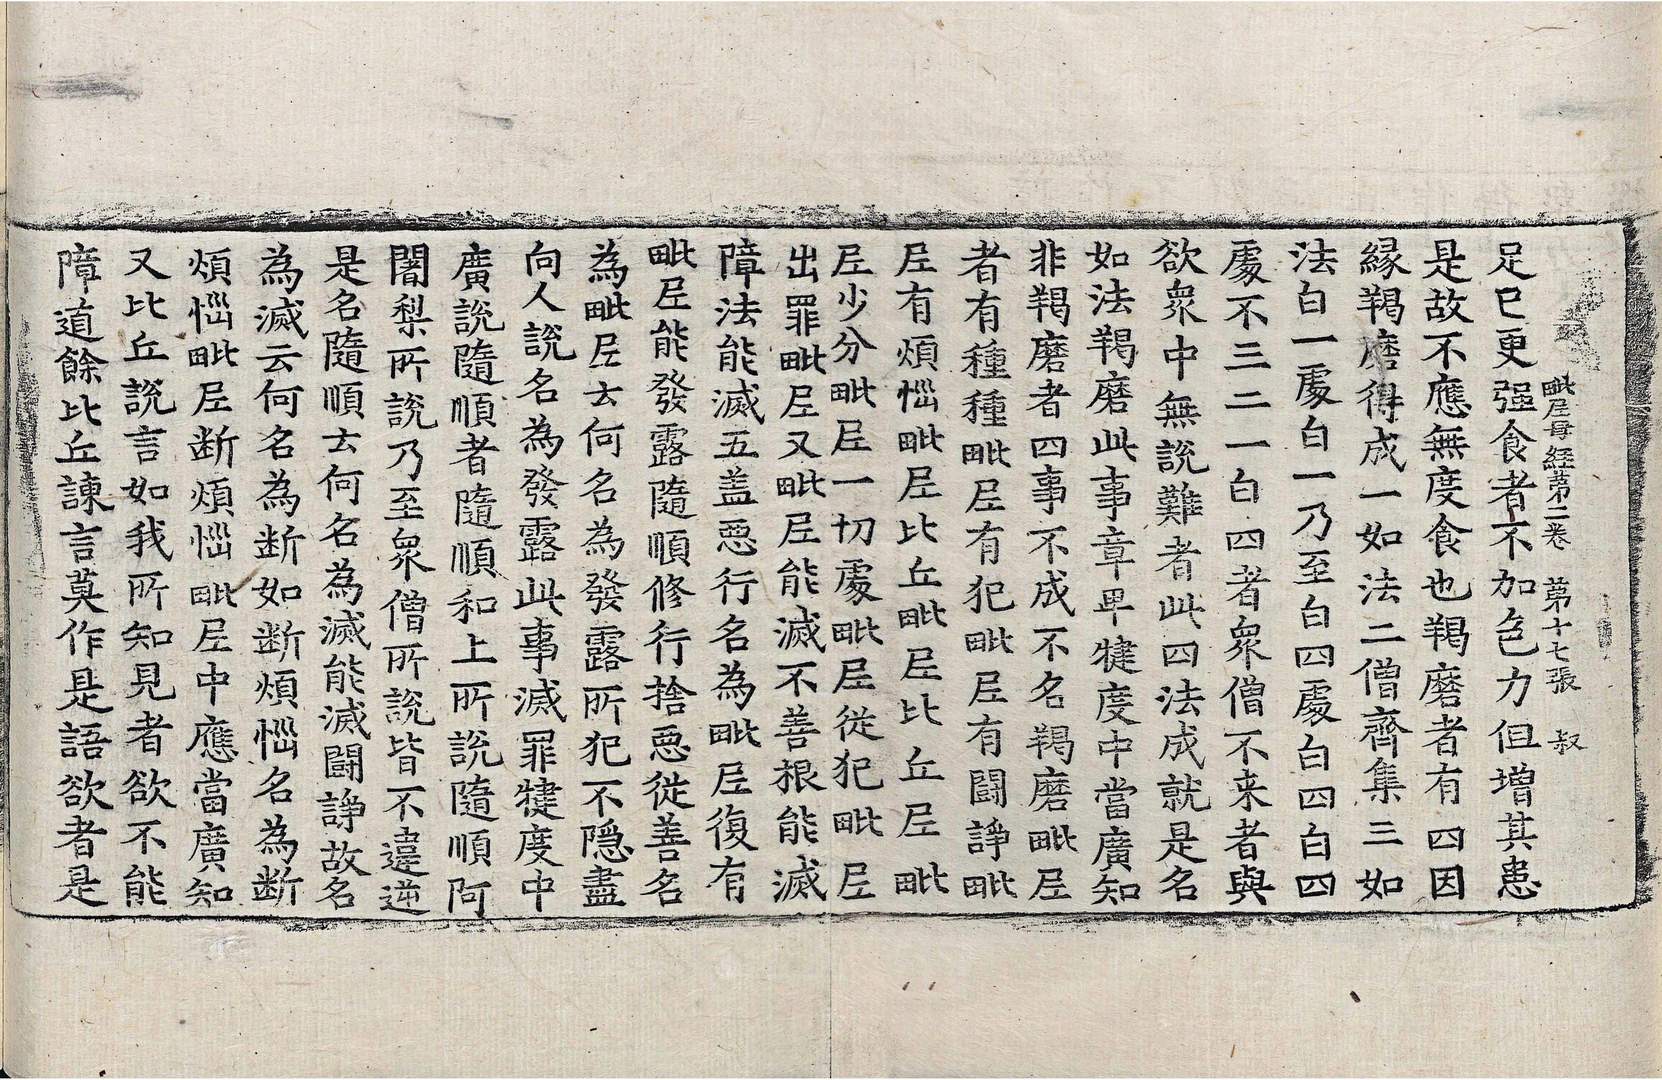 毗尼母經第二卷　第十七張　叔
足已更强食者不加色力但增其患
是故不應無度食也羯磨者有四因
緣羯磨得成一如法二僧齊集三如
法白一處白一乃至白四處白四白四
處不三二一白四者衆僧不来者與
欲衆中無說難者此四法成就是名
如法羯磨此事章早犍度中當廣知
非羯磨者四事不成不名羯磨毗尼
者有種種毗尼有犯毗尼有鬪諍毗
尼有煩惱毗尼比丘毗尼比丘尼毗
尼少分毗尼一切處毗尼從犯毗尼
出罪毗尼又毗尼能滅不善根能滅
障法能滅五盖惡行名為毗尼復有
毗尼能發露隨順修行捨惡從善名
為毗尼云何名為發露所犯不隱盡
向人說名為發露此事滅罪犍度中
廣說隨順者隨順和上所說隨順阿
闍梨所說乃至衆僧所說皆不違逆
是名隨順云何名為滅能滅鬪諍故名
為滅云何名為断如断煩惱名為断
煩惱毗尼断煩惱毗尼中應當廣知
又比丘說言如我所知見者欲不能
障道餘比丘諫言莫作是語欲者是